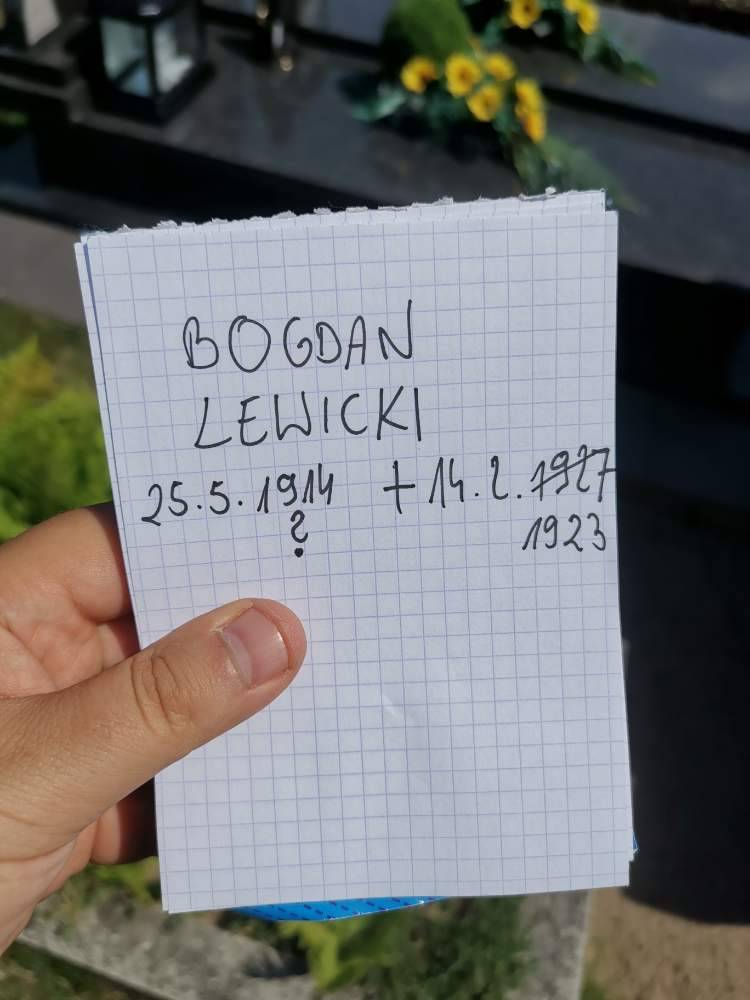 BOGDAN
LEWICKI
25.5.1914 + 14.2.1927
?
1923